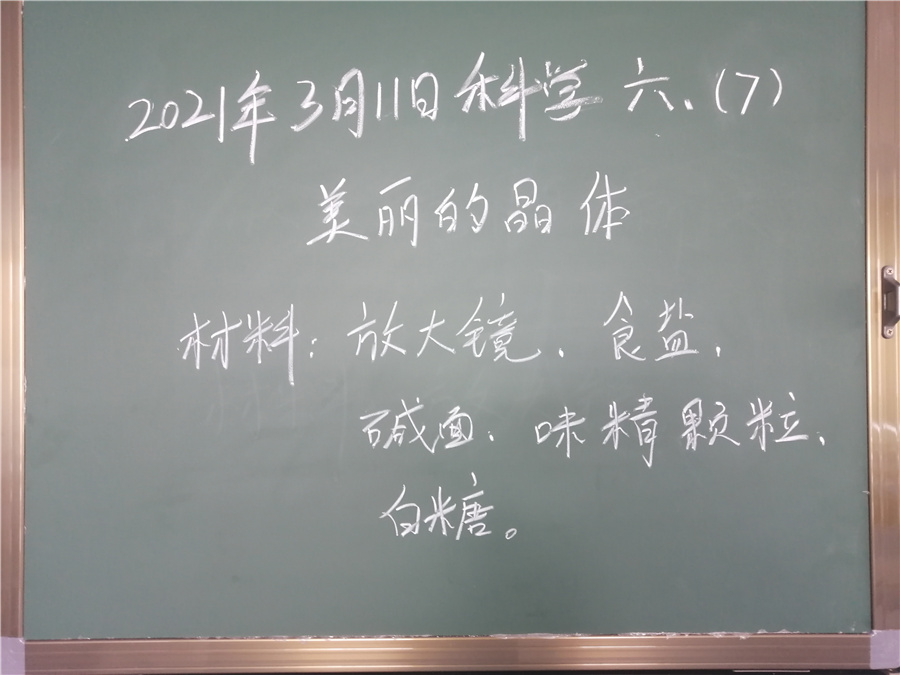 2021年3月11日科学 六、(7)
美丽的晶体
材料：放大镜、食盐、
碱面、味精颗粒、
白糖。